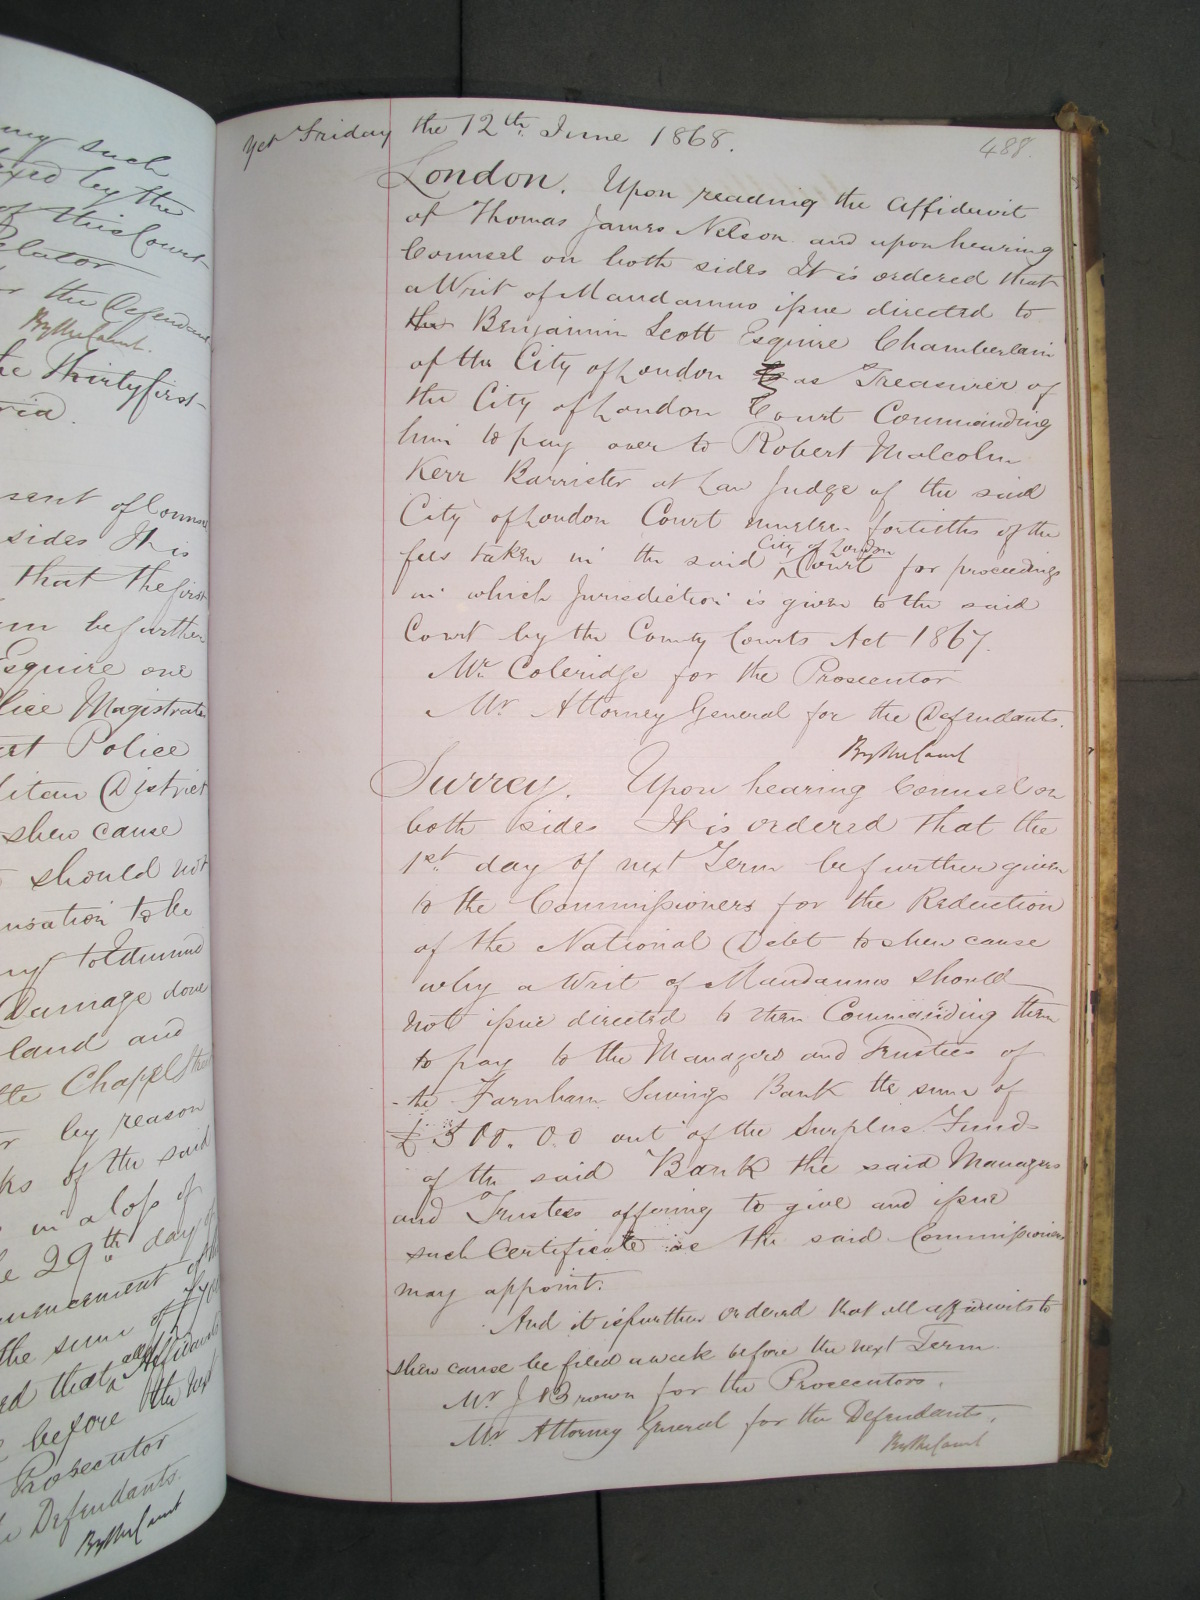 my such
by the
of this Court
Relator
the Defendant
By the Court.
the Thirtyfirst
sent of Counsel
sides It is
that the first
be further
Esquire one
Police Magistrate
Police
District
shew cause
should not
to be
Damage done
land and
Chappel Street
by reason
of the said
in a loss of
29th day of
the sum of
that all Affidavits
before the next
Prosecutor
Defendants.
By the Court
Yet Friday the 12th June 1868.
488.
London. Upon reading the affidavit
of Thomas James Nelson and upon hearing
Counsel on both sides It is ordered that
a Writ of Mandamus issue directed to
the Benjamin Scott Esquire Chamberlain
of the City of London as Treasurer of
the City of London Court Commanding
him to pay over to Robert Malcolm
Kerr Barrister at Law Judge of the said
City of London Court nineteen fortieths of the
fees taken in the said City of London Court for proceedings
in which Jurisdiction is given to the said
Court by the County Courts Act 1867.
Mr. Coleridge for the Prosecutor
Mr. Attorney General for the Defendants.
By the Court
Surrey. Upon hearing Counsel on
both sides It is ordered that the
1st day of next Term be further given
to the Commissioners for the Reduction
of the National Debt to shew cause
why a Writ of Mandamus should
not issue directed to them Commanding them
to pay to the Managers and Trustees of
the Farnham Savings Bank the sum of
£500.00 out of the Surplus Fund
of the said Bank the said Managers
and Trustees offering to give and issue
such Certificate as the said Commissioners
may appoint.
And it is further ordered that all affidavits to
shew cause be filed a week before the next Term
Mr. J Brown for the Prosecutors.
Mr. Attorney General for the Defendants.
By the Court